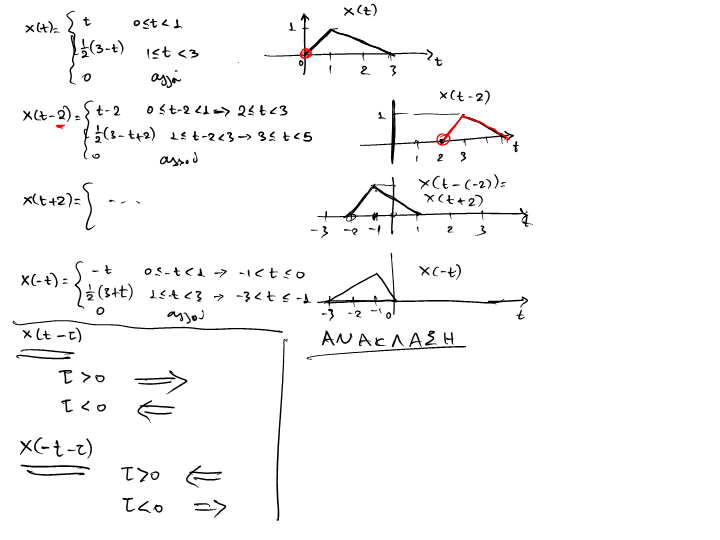 x(t)= { t 0≤t<1
½(3-t) 1≤t<3
0 αλλού
x(t)
1
0 1 2 3 t
x(t-2)= { t-2 0≤t-2<1 → 2≤t<3
½(3-t+2) 1≤t-2<3 → 3≤t<5
0 αλλού
x(t-2)
1
1 2 3 t
x(t+2)= { ...
x(t-(-2))=
x(t+2)
-3 -2 -1 1 2 3
x(-t)= { -t 0≤-t<1 → -1<t≤0
½(3+t) 1≤-t<3 → -3<t≤-1
0 αλλού
x(-t)
-3 -2 -1 0 t
x(t-τ)
τ>0 ⇒
τ<0 ⇐
x(-t-τ)
τ>0 ⇐
τ<0 ⇒
ΑΝΑΚΛΑΣΗ